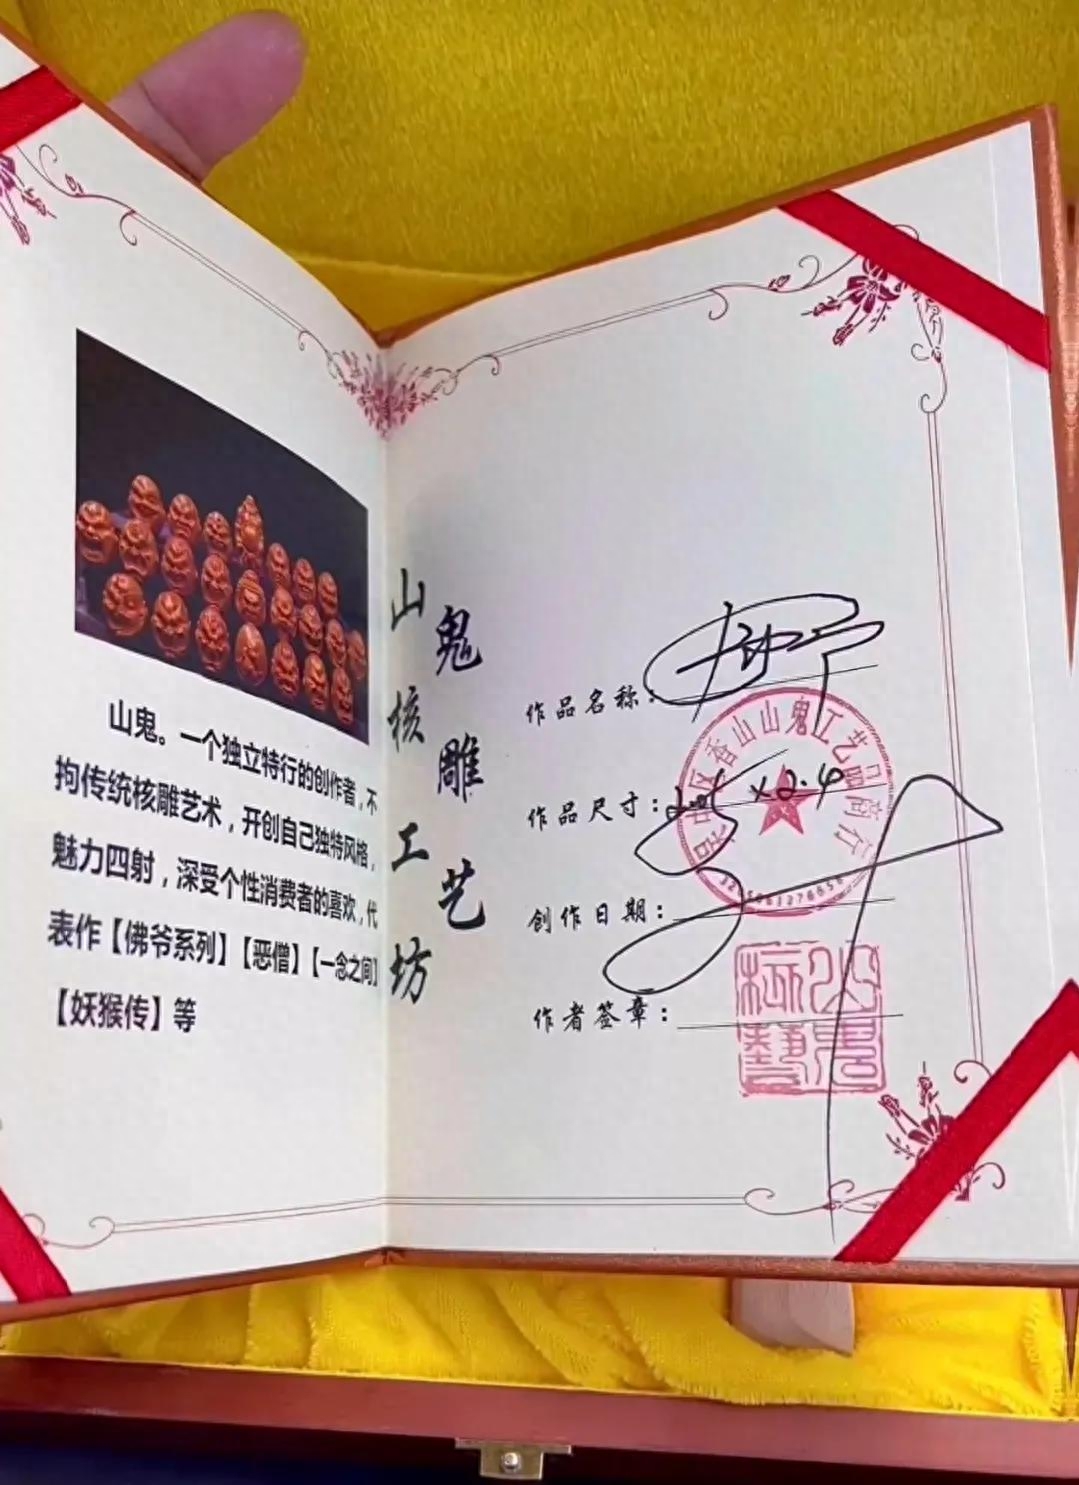 山鬼。一个独立特行的创作者，不
拘传统核雕艺术，开创自己独特风格，
魅力四射，深受个性消费者的喜欢，代
表作【佛爷系列】【恶僧】【一念之间】
【妖猴传】等
山鬼
核雕
工艺
坊
作品名称：
作品尺寸：
创作日期：
作者签章：
吴中区香山山鬼工艺品商行